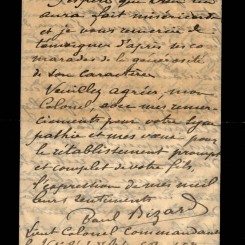 J'espère que Dieu lui
aura fait miséricorde
et je vous remercie de
témoigner d'après ses ca
marades de la générosité
de son caractère.
Veuillez agréer, mon
Colonel, avec mes remer
ciements pour votre sym
pathie et mes vœux pour
le rétablissement prompt
et complet de votre fils,
l'expression de mes meil
leurs sentiments
Paul Bizard
Lieut Colonel Commandant